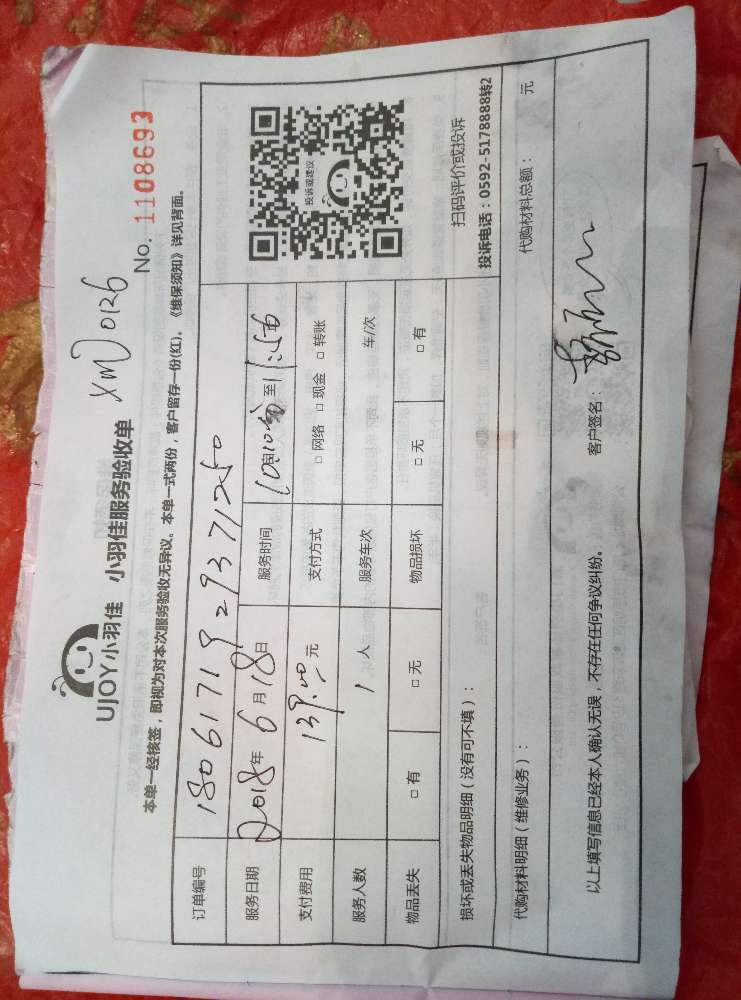 UJOY小羽佳 小羽佳服务验收单 XM0126
No. 1108693
本单一经核签，即视为对本次服务验收无异议。本单一式两份，客户留存一份(红)。《维保须知》详见背面。
订单编号 1806171929371250
服务日期 2018年 6月18日 服务时间 10时10分至11:56
支付费用 139.00 元 支付方式 □ 网络 □ 现金 □ 转账
服务人数 1 人 服务车次 车/次
物品丢失 □ 有 □ 无 物品损坏 □ 无 □ 有
投诉或建议
扫码评价或投诉
投诉电话：0592-5178888转2
损坏或丢失物品明细（没有可不填）：
代购材料明细（维修业务）： 代购材料总额： 元
以上填写信息已经本人确认无误，不存在任何争议纠纷。
客户签名：